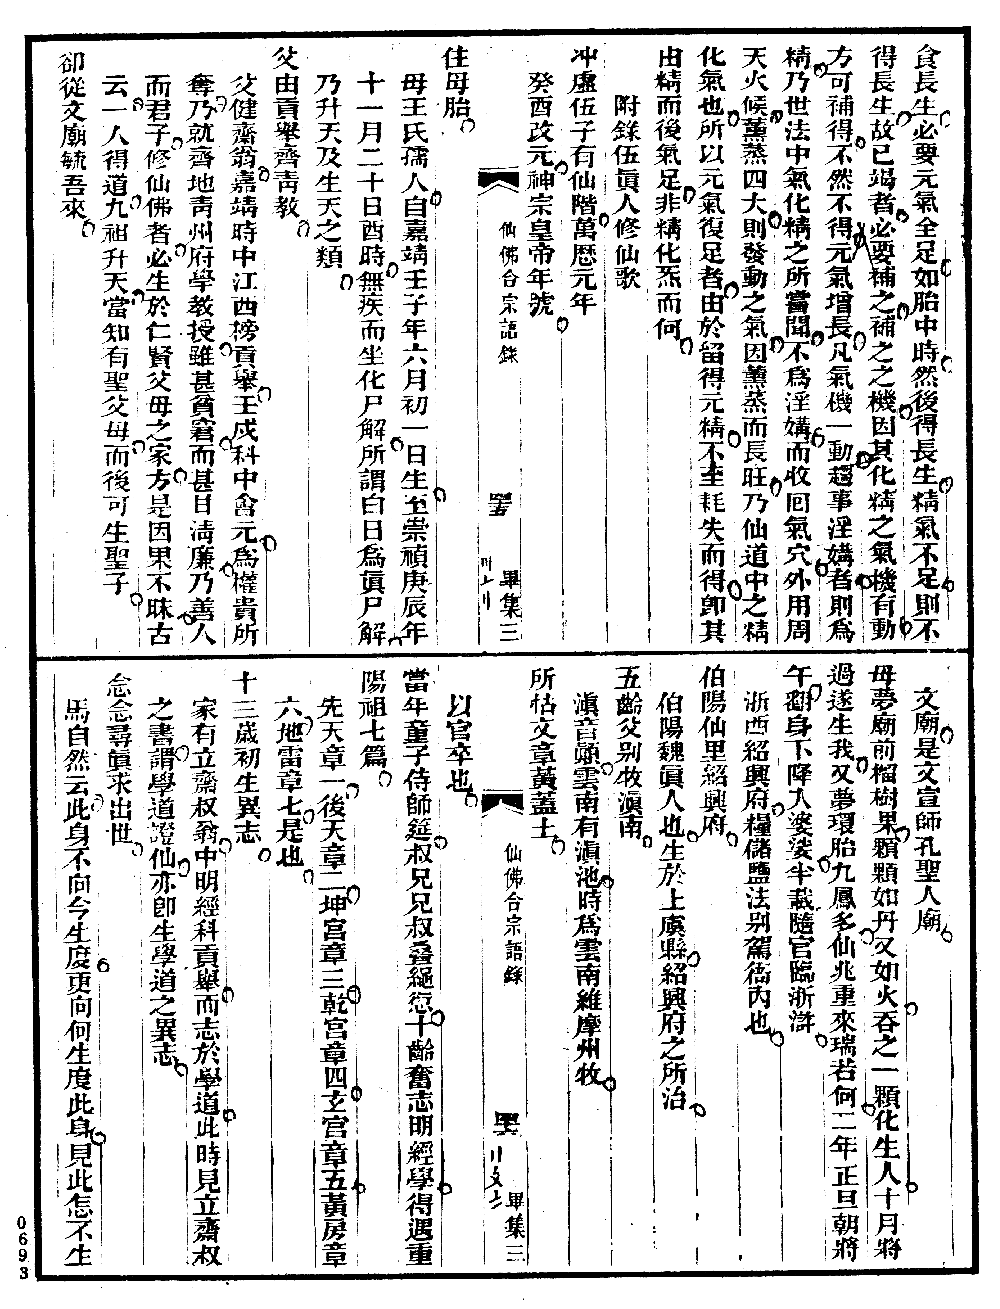 食長生必要元氣全足如胎中時然後得長生精氣不足則不
得長生故已竭者必要補之補之之機因其化精之氣機有動
方可補得不然不得元氣增長凡氣機一動趨事淫媾者則為
精乃世法中氣化精之所當聞不為淫媾而收囘氣穴外用周
天火候薰蒸四大則發動之氣因薰蒸而長旺乃仙道中之精
化氣也所以元氣復足者由於留得元精不至耗失而得卽其
由精而後氣足非精化炁而何
附錄伍眞人修仙歌
冲虛伍子有仙階萬厯元年
癸酉改元神宗皇帝年號
仙佛合宗語錄
畢集三
住母胎
母王氏孺人自嘉靖壬子年六月初一日生至崇禎庚辰年
十一月二十日酉時無疾而坐化尸解所謂白日為眞尸解
乃升天及生天之類
父由貢舉齊靑教
父健齋翁嘉靖時中江西榜貢舉壬戌科中會元為權貴所
奪乃就齊地靑州府學教授雖甚貧窘而甚日淸廉乃善人
而君子修仙佛者必生於仁賢父母之家方是因果不昧古
云一人得道九祖升天當知有聖父母而後可生聖子
卻從文廟毓吾來
文廟是文宣師孔聖人廟
母夢廟前榴樹果顆顆如丹又如火吞之一顆化生人十月將
過遂生我又夢環胎九鳳多仙兆重來瑞若何二年正旦朝將
午翻身下降入婆娑半載隨官臨浙滸
浙西紹興府糧儲鹽法别駕衙內也
伯陽仙里紹興府
伯陽魏眞人也生於上虞縣紹興府之所治
五齡父别牧滇南
滇音顚雲南有滇池時為雲南維摩州牧
所怙文章黃蓋土
仙佛合宗語錄
畢集三
以官卒也
當年童子侍師筵叔兄兄叔叠繩愆十齡奮志明經學得遇重
陽祖七篇
先天章一後天章二坤宫章三乾宫章四玄宫章五黃房章
六地雷章七是也
十三歲初生異志
家有立齋叔翁中明經科貢舉而志於學道此時見立齋叔
之書謂學道證仙亦卽生學道之異志
念念尋眞求出世
馬自然云此身不向今生度更向何生度此身見此怎不生
0693